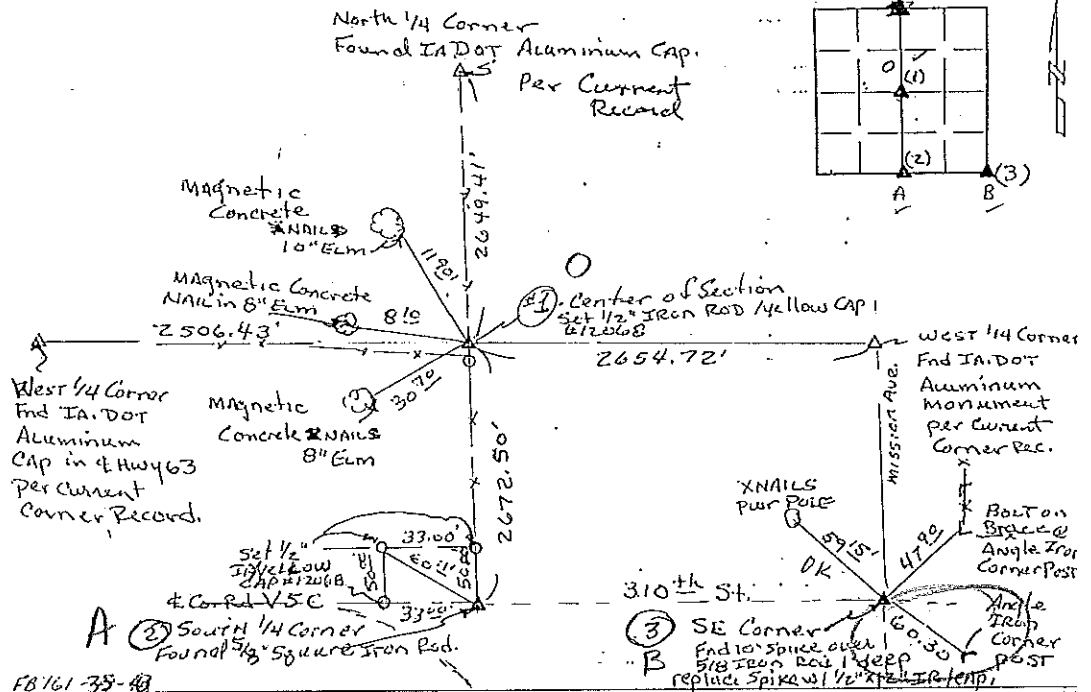 North 1/4 Corner
Found IA.DOT Aluminium CAP.
Per Current
Record
2649.41'
O
(1)
(2)
(3)
A
B
Magnetic
Concrete
NAILS
10" Elm
1190'
MAgnetic Concrete
NAIL in 8" Elm
8 10
O
#1 Center of Section
Set 1/2" IRON ROD /yellow CAP
2506.43'
2654.72'
West 1/4 Corner
Fnd IA. DOT
Aluminum
CAP in ℄ Hwy 63
per Current
Corner Record.
MAgnetic
Concrete XNAILS
8" Elm
30 70
2672.50'
WEST 1/4 Corner
Fnd IA.DOT
Aluminum
Monument
per Current
Corner Rec.
Mission Ave.
XNAILS
PWR POLE
59 15'
OK
47 90
BOLT on
Brace @
Angle Iron
Corner Post
33.00'
Set 1/2"
Yellow
CAP #12068
33 00'
310th St.
60.30
Angle
Iron
Corner
post
A (2) South 1/4 Corner
Found 5/8" Square Iron Rod.
(3) SE Corner
B
Fnd 10" Spike over
5/8 Iron Rod 1' deep
replace Spike w/ 1/2" IR/CAP.
FB161